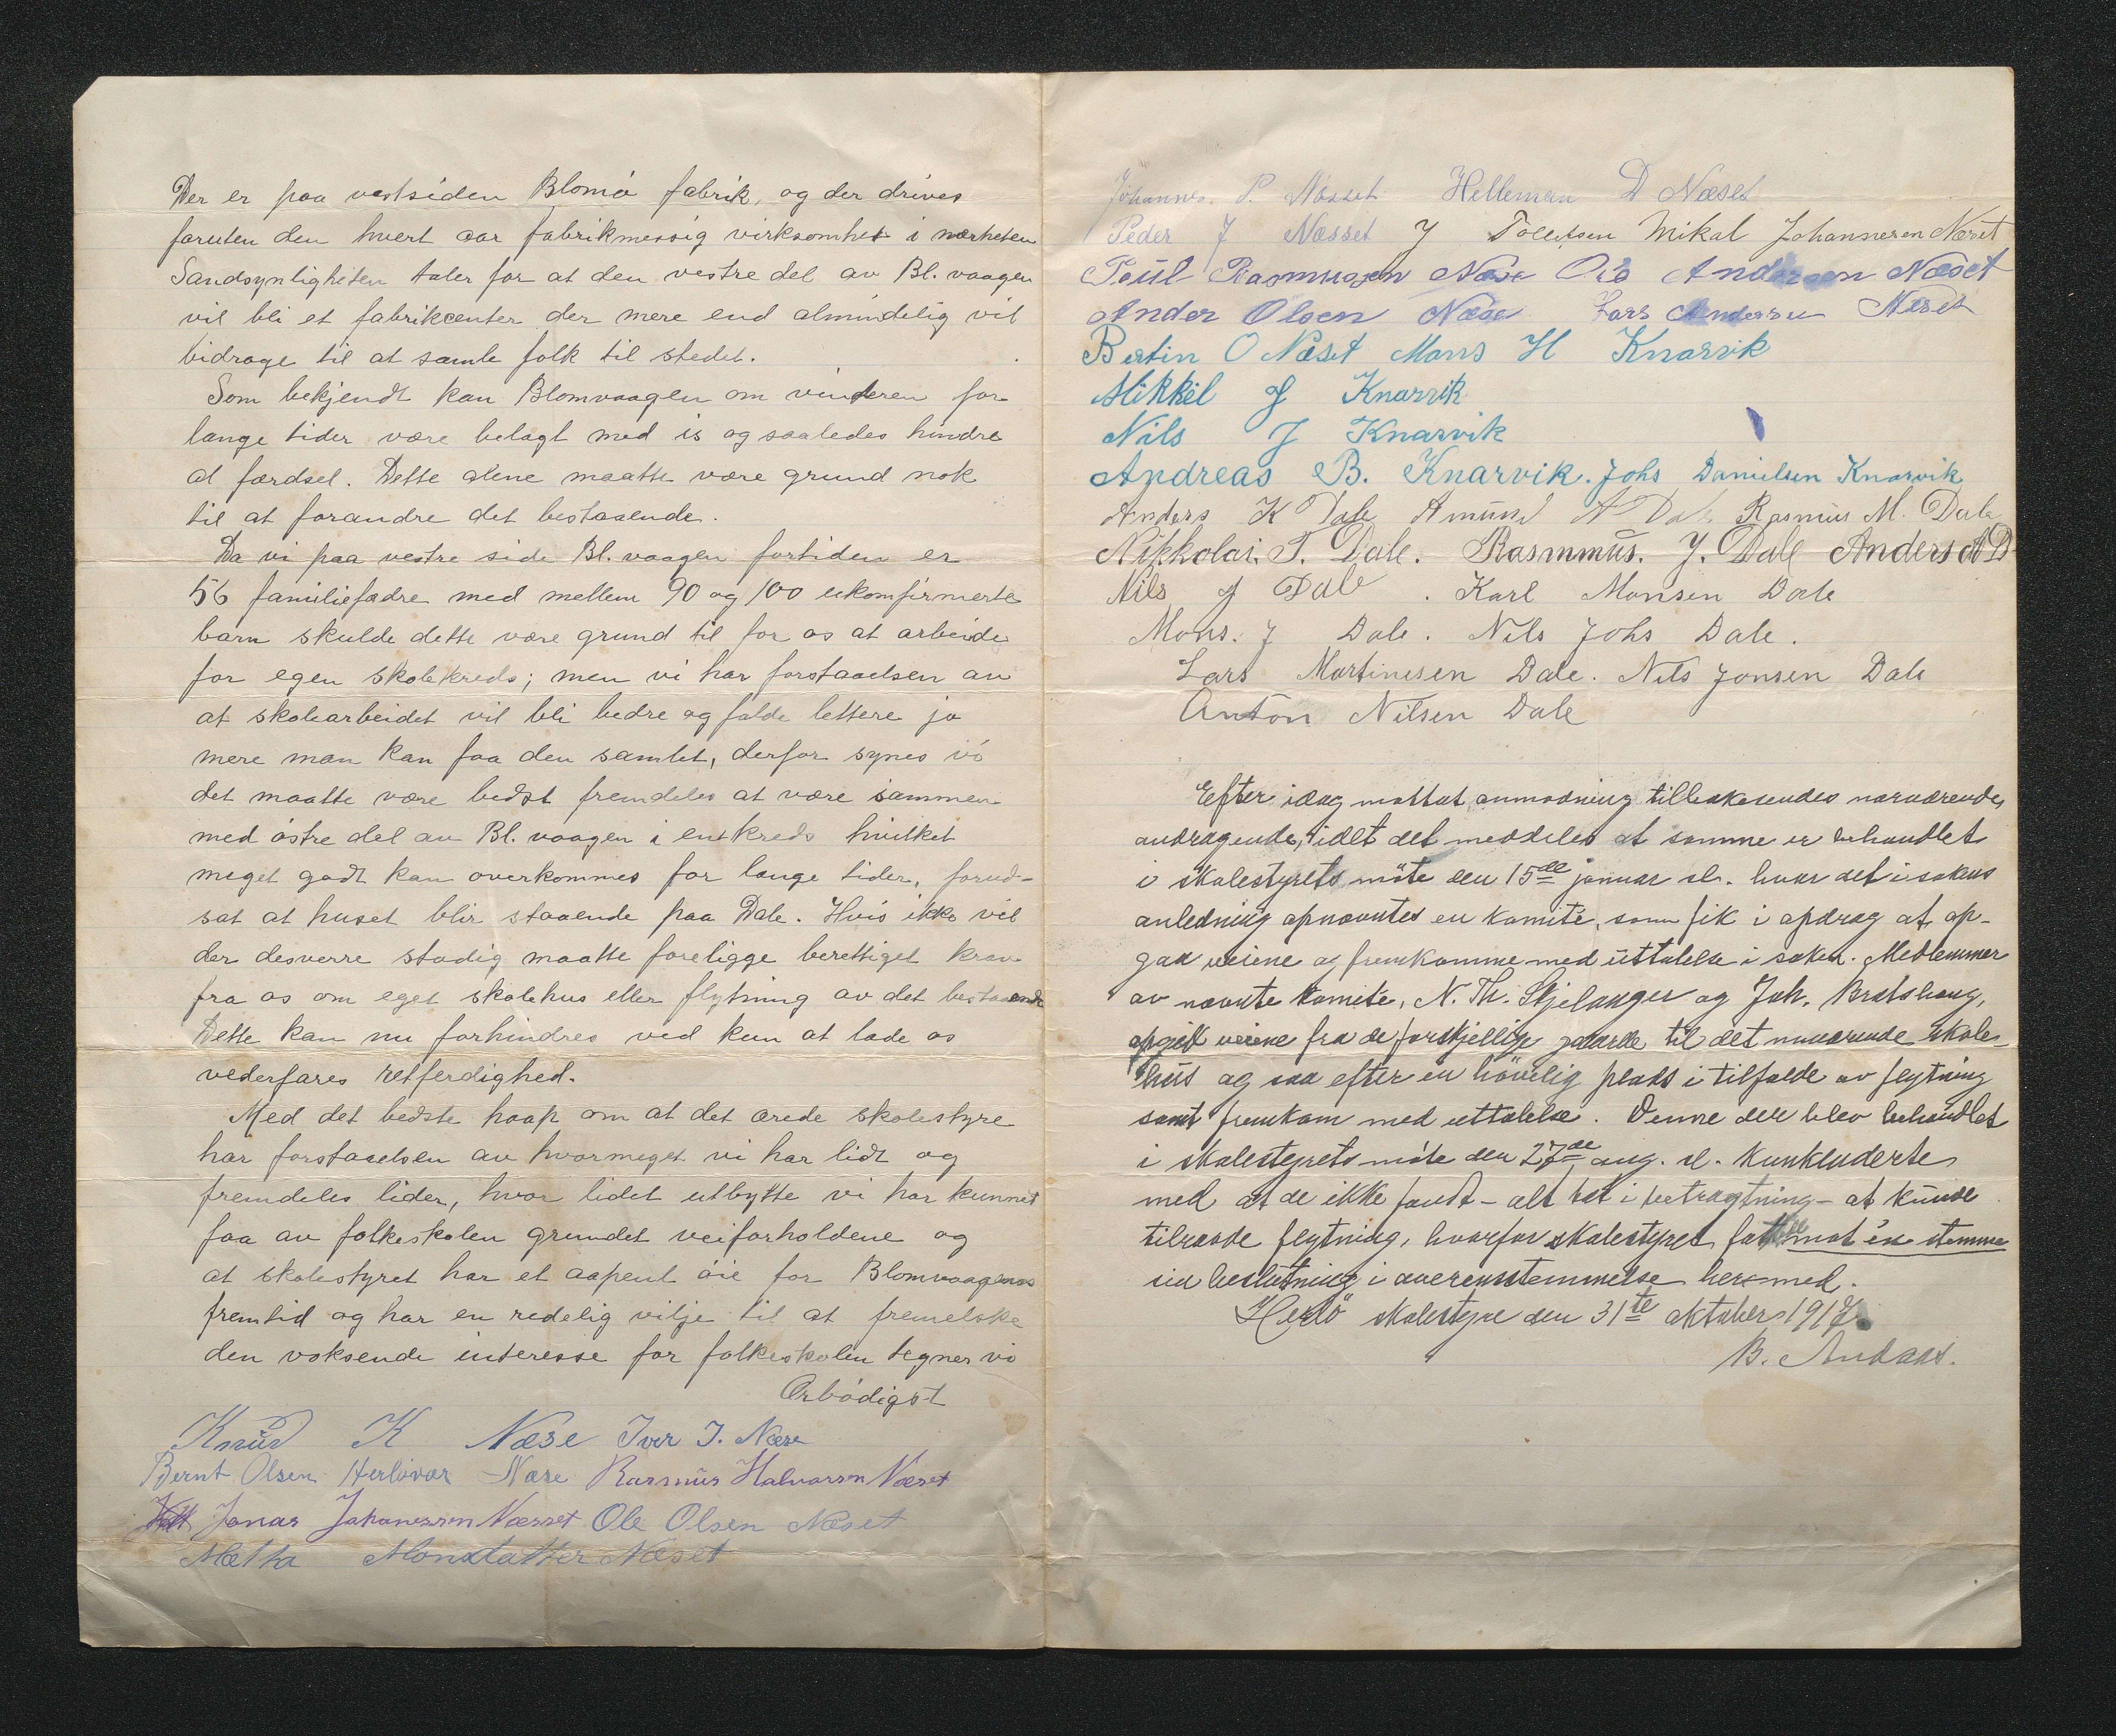 Der er paa vestsiden Blomö fabrik, og der drives
foruten den hvert aar fabrikmessig virksomhet i nærheten
Sandsynligheten taler for at den vestre del av Bl. vaagen
vil bli et fabrikcenter der mere end almindelig vil
bidrage til at samle folk til stedet.
Som bekjendt kan Blomvaagen om vinteren for
lange tider være belagt med is og saaledes hindre
al færdsel. Dette alene maatte være grund nok
til at forandre det bestaaende.
Da vi paa vestre side Bl. vaagen fortiden er
56 familiefædre med mellem 90 og 100 ukonfirmerte
barn skulde dette være grund til for os at arbeide
for egen skolekreds; men vi har forstaaelsen av
at skolearbeidet vil bli bedre og falde lettere jo
mere man kan faa den samlet, derfor synes vi
det maatte være bedst fremdeles at være sammen
med östre del av Bl. vaagen i en kreds hvilket
meget godt kan overkommes for lange tider, forud-
sat at huset blir staaende paa Dale. Hvis ikke vil
der desverre stadig maatte foreligge berettiget krav
fra os om eget skolehus eller flytning av det bestaaende
Dette kan nu forhindres ved kun at lade os
vederfares retferdighed.
Med det bedste haap om at det ærede skolestyre
har forstaaelsen av hvormeget vi har lidt og
fremdeles lider, hvor lidet utbytte vi har kunnet
faa av folkeskolen grundet veiforholdene og
at skolestyret har et aapent öie for Blomvaagens
fremtid og har en redelig vilje til at fremelske
den voksende interesse for folkeskolen tegner vi
Ærbödigst
Knud K Næse Iver I. Næse
Bernt Olsen Herlövær Næse Rasmus Halvorsen Næset
Jonas Johanessen Næsset Ole Olsen Næset
Metha Monsdatter Næset
Johannes. P. Næsset Helleman D Næset
Peder J Næsset J Tollefsen Mikal Johannesen Næset
Poul Rasmusen Næse Ole Andersen Næset
Ander Olsen Næse Lars Andersen Neset
Bertin O Næset Mons H Knarvik
Mikkel J Knarvik
Nils J Knarvik
Andreas B. Knarvik. Johs Danielsen Knarvik
Anders K Dale Amund A Dale Rasmus M. Dale
Nikkolai. T. Dale. Rasmmus. J. Dale Anders A D
Nils J Dale. Karl Monsen Dale
Mons. J Dale. Nils Johs Dale.
Lars Martinesen Dale. Nils Jonsen Dale
Anton Nilsen Dale
Efter idag mottat anmodning tilbakesendes nærværende
andragende, idet det meddeles at samme er behandlet
i skolestyrets möte den 15de januar sl. hvor det i sakens
anledning opnævntes en komité, som fik i opdrag at op-
gaa veiene og fremkomme med uttalelse i saken. Medlemmer
av nævnte komité, N. Th. Skjelanger og Joh. Bratshaug,
opgik veiene fra de forskjellige gaarde til det nuværende skole-
hus og saa efter en hövelig plads i tilfælde av flytning
samt fremkom med uttalelse. Denne der blev behandlet
i skolestyrets möte den 27de aug. sl. konkluderte
med at de ikke fandt - alt tat i betragtning - at kunde
tilraade flytning, hvorfor skolestyret fattet mot én stemme
sin beslutning i overensstemmelse hermed.
Herlö skolestyre den 31te oktober 1917.
B. Andaas.